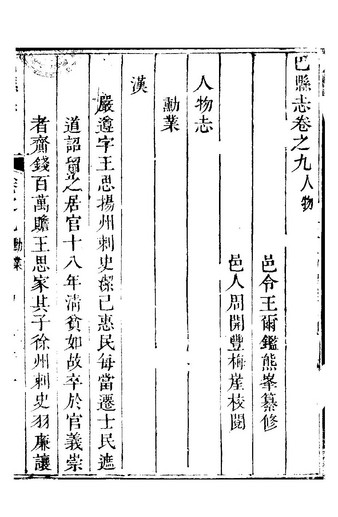 巴縣志卷之九 人物
邑令王爾鑑熊峯纂修
邑人周開豐梅崖校閱
人物志
勳業
漢
嚴遵字王思揚州刺史潔已惠民每當遷士民遮
道詔留之居官十八年清貧如故卒於官義崇
者齎錢百萬贍王思家其子徐州刺史羽廉讓
勳業